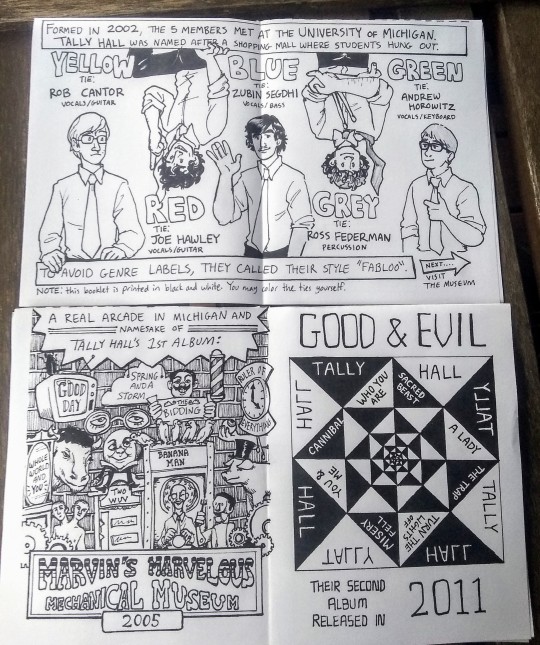 FORMED IN 2002, THE 5 MEMBERS MET AT THE UNIVERSITY OF MICHIGAN.
TALLY HALL WAS NAMED AFTER A SHOPPING MALL WHERE STUDENTS HUNG OUT.
YELLOW
TIE:
ROB CANTOR
VOCALS/GUITAR
BLUE
TIE:
ZUBIN SEGDHI
VOCALS/BASS
GREEN
TIE:
ANDREW
HOROWITZ
VOCALS/KEYBOARD
RED
TIE:
JOE HAWLEY
VOCALS/GUITAR
GREY
TIE:
ROSS FEDERMAN
PERCUSSION
TO AVOID GENRE LABELS, THEY CALLED THEIR STYLE "FABLOO".
NEXT....
VISIT
THE MUSEUM
NOTE: this booklet is printed in black and white. You may color the ties yourself.
A REAL ARCADE IN MICHIGAN AND
NAMESAKE OF
TALLY HALL'S 1ST ALBUM:
GOOD
DAY
SPRING
AND A
STORM
THE
BIDDING
RULER OF
EVERYTHING
WHOLE
WORLD
AND
YOU
BANANA
MAN
TWO
WUV
MARVIN'S MARVELOUS
MECHANICAL MUSEUM
2005
GOOD & EVIL
TALLY
HALL
TALLY
TALLY
HALL
TALLY
HALL
HALL
WHO YOU
ARE
SACRED
BEAST
A LADY
THE TRAP
TURN THE
LIGHTS
OFF
MISERY
FELL
YOU &
ME
CANNIBAL
THEIR SECOND
ALBUM
RELEASED IN
2011